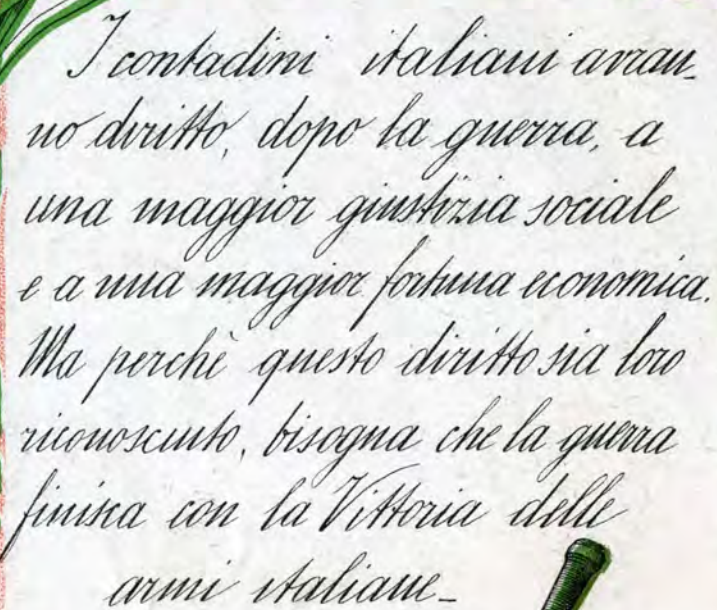 I contadini italiani avran-
no diritto, dopo la guerra, a
una maggior giustizia sociale
e a una maggior fortuna economica.
Ma perchè questo diritto sia loro
riconosciuto, bisogna che la guerra
finisca con la Vittoria delle
armi italiane_